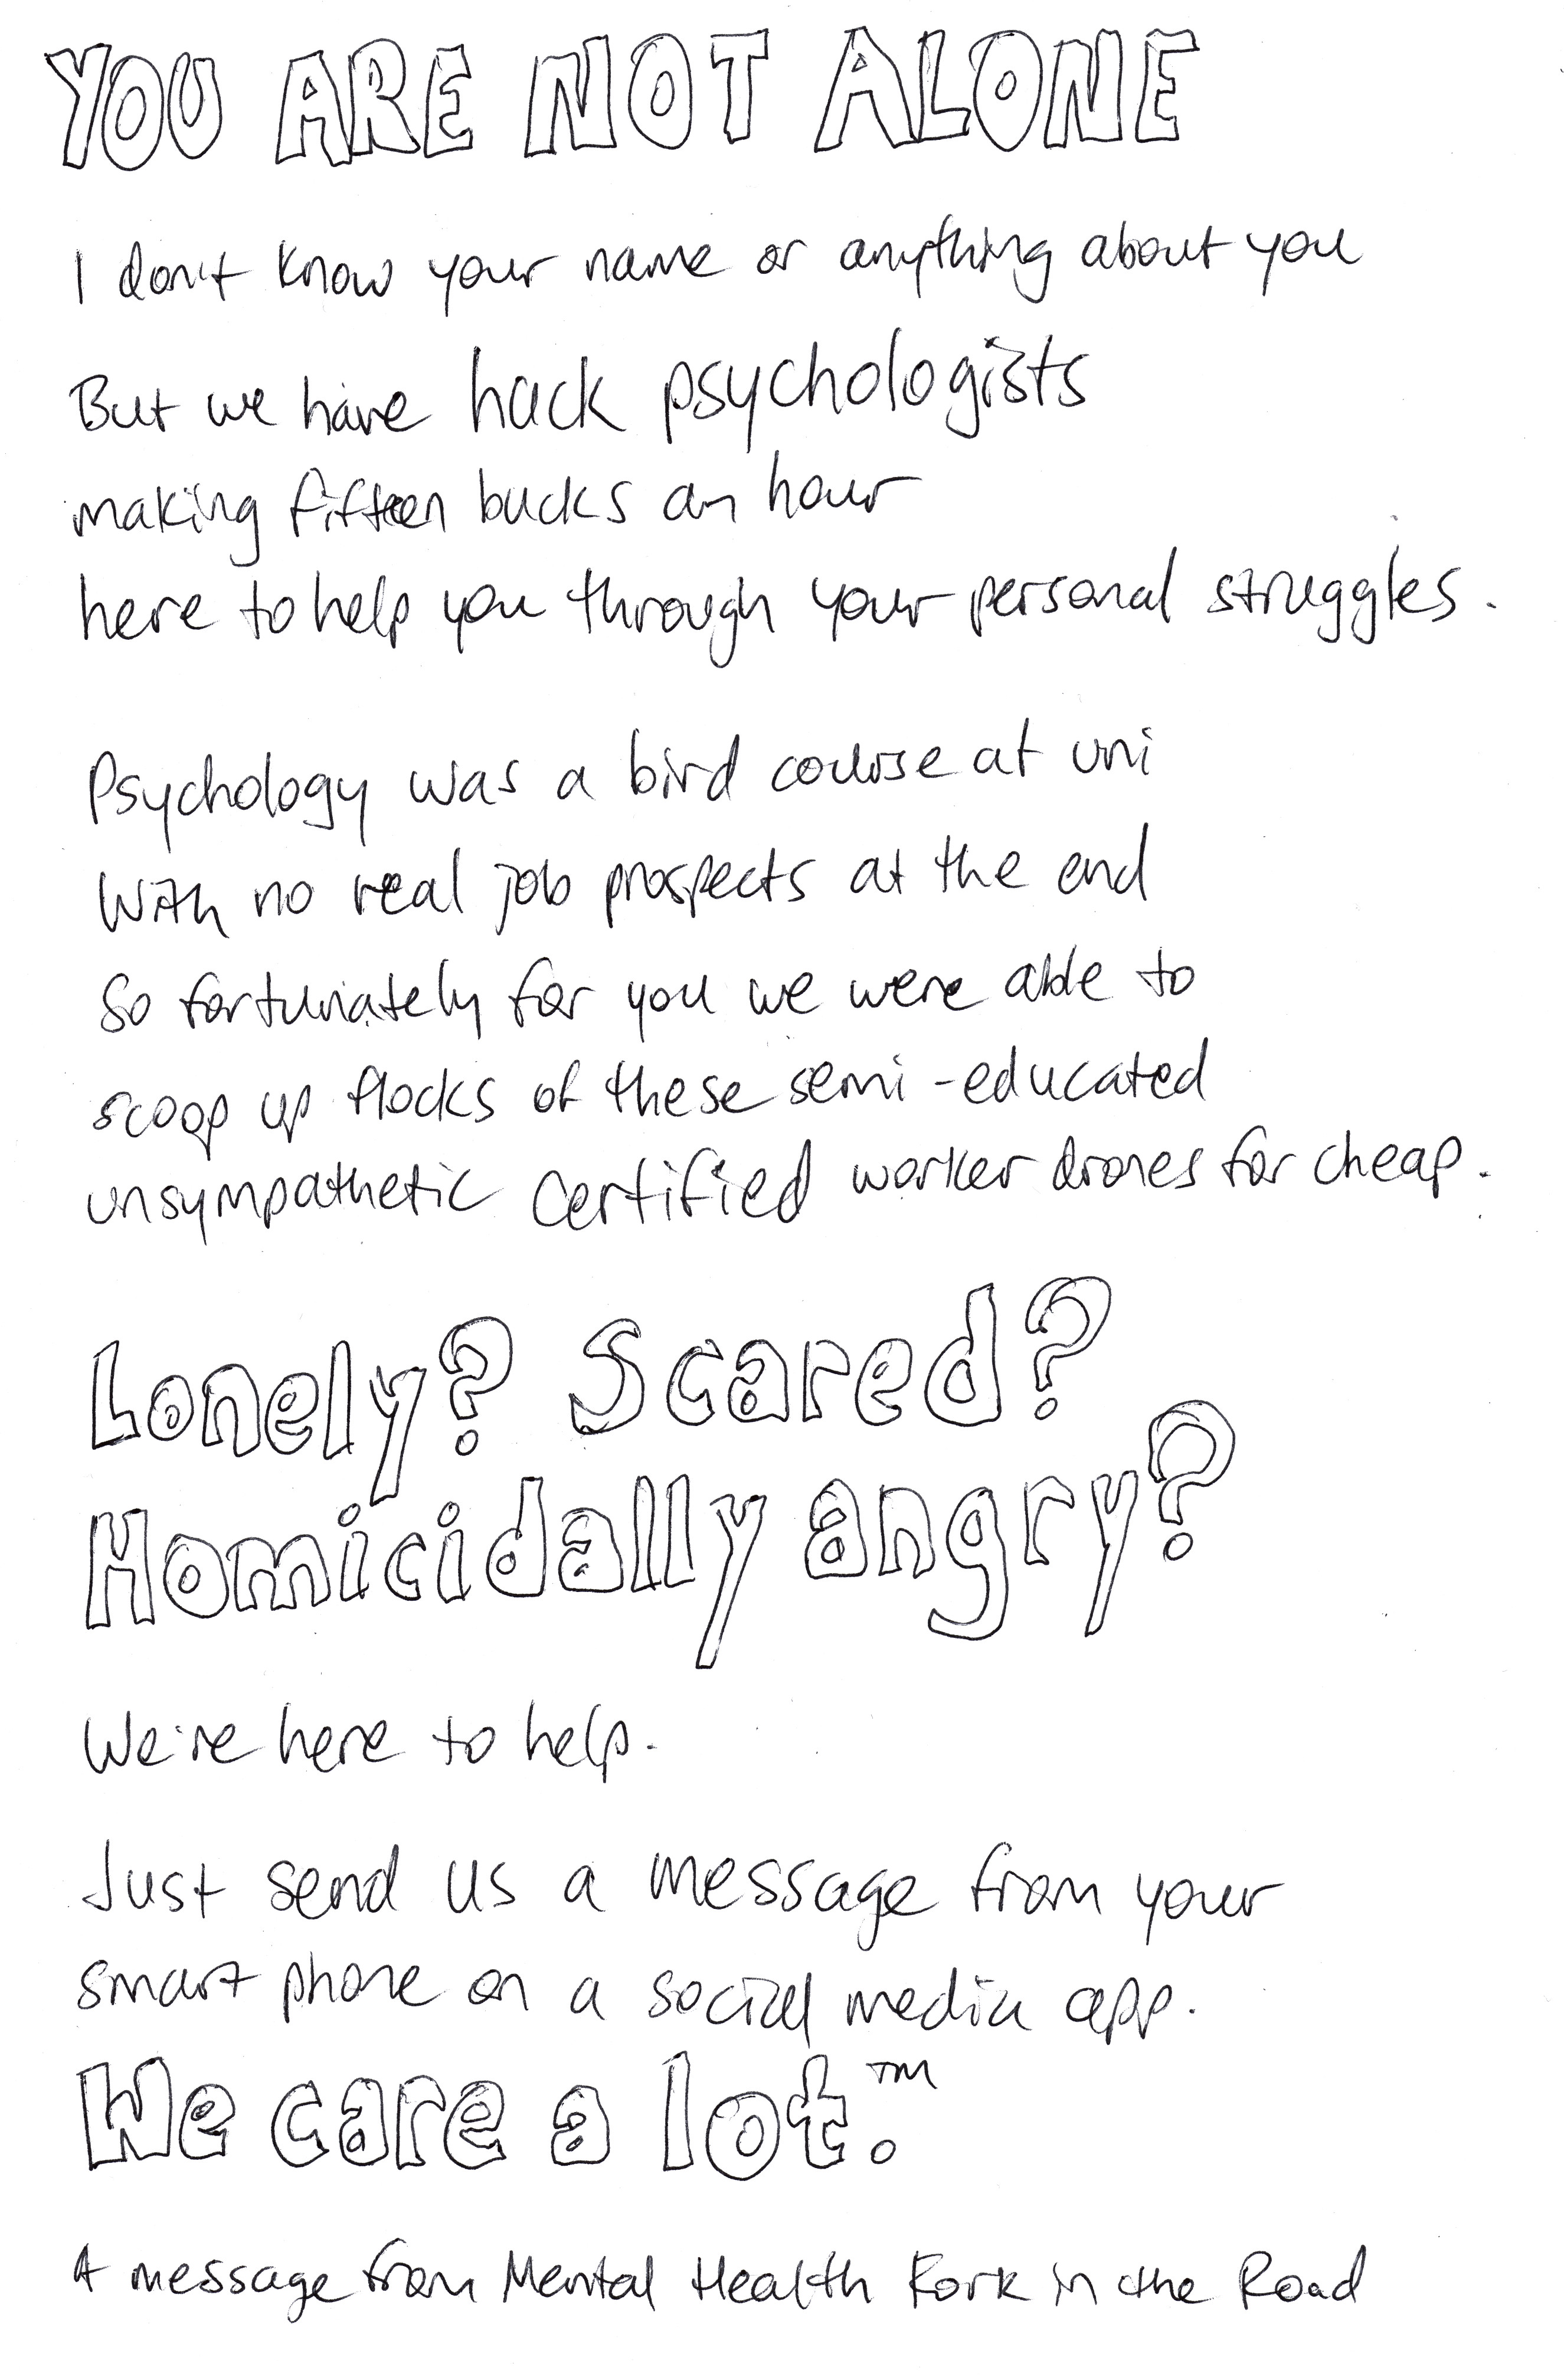 YOU ARE NOT ALONE
I don't know your name or anything about you
But we have hack psychologists
making fifteen bucks an hour
here to help you through your personal struggles.
Psychology was a bird course at uni
With no real job prospects at the end
So fortunately for you we were able to
scoop up flocks of these semi-educated
unsympathetic certified worker drones for cheap.
Lonely? Scared?
Homicidally angry?
We're here to help.
Just send us a message from your
smart phone on a social media app.
We care a lot.™
A message from Mental Health Fork in the Road